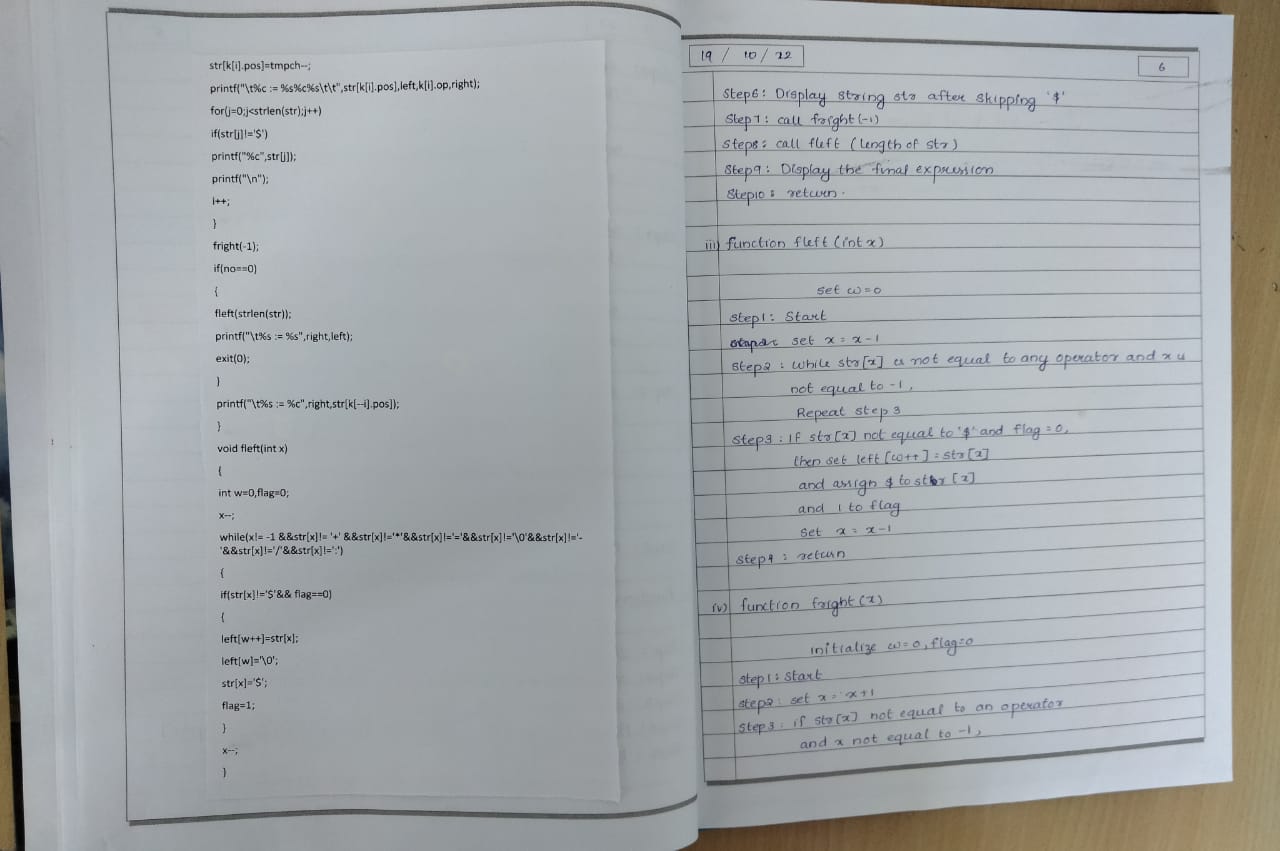 str[k[i].pos]=tmpch--;
printf("\t%c := %s%c%s\t\t",str[k[i].pos],left,k[i].op,right);
for(j=0;j<strlen(str);j++)
if(str[j]!='$')
printf("%c",str[j]);
printf("\n");
i++;
}
fright(-1);
if(no==0)
{
fleft(strlen(str));
printf("\t%s := %s",right,left);
exit(0);
}
printf("\t%s := %c",right,str[k[--i].pos]);
}
void fleft(int x)
{
int w=0,flag=0;
x--;
while(x!= -1 &&str[x]!= '+' &&str[x]!='*'&&str[x]!='='&&str[x]!='\0'&&str[x]!='-
'&&str[x]!='/'&&str[x]!=':')
{
if(str[x]!='$'&& flag==0)
{
left[w++]=str[x];
left[w]='\0';
str[x]='$';
flag=1;
}
x--;
}
19 / 10 / 22
6
Step6: Display string str after skipping '$'
Step7: call fright(-1)
Step8: call fleft (length of str)
Step9: Display the final expression
Step10: return.
iii) function fleft (int x)
set w=0
Step1: Start
set x = x-1
Step2: While str[x] is not equal to any operator and x is
not equal to -1,
Repeat step 3
Step3: If str[x] not equal to '$' and flag = 0,
then set left [w++] = str[x]
and assign $ to str [x]
and 1 to flag
Set x = x-1
Step4: return
iv) function fright (x)
initialize w=0, flag=0
Step1: Start
Step2: set x = x+1
Step3: if str[x] not equal to an operator
and x not equal to -1,